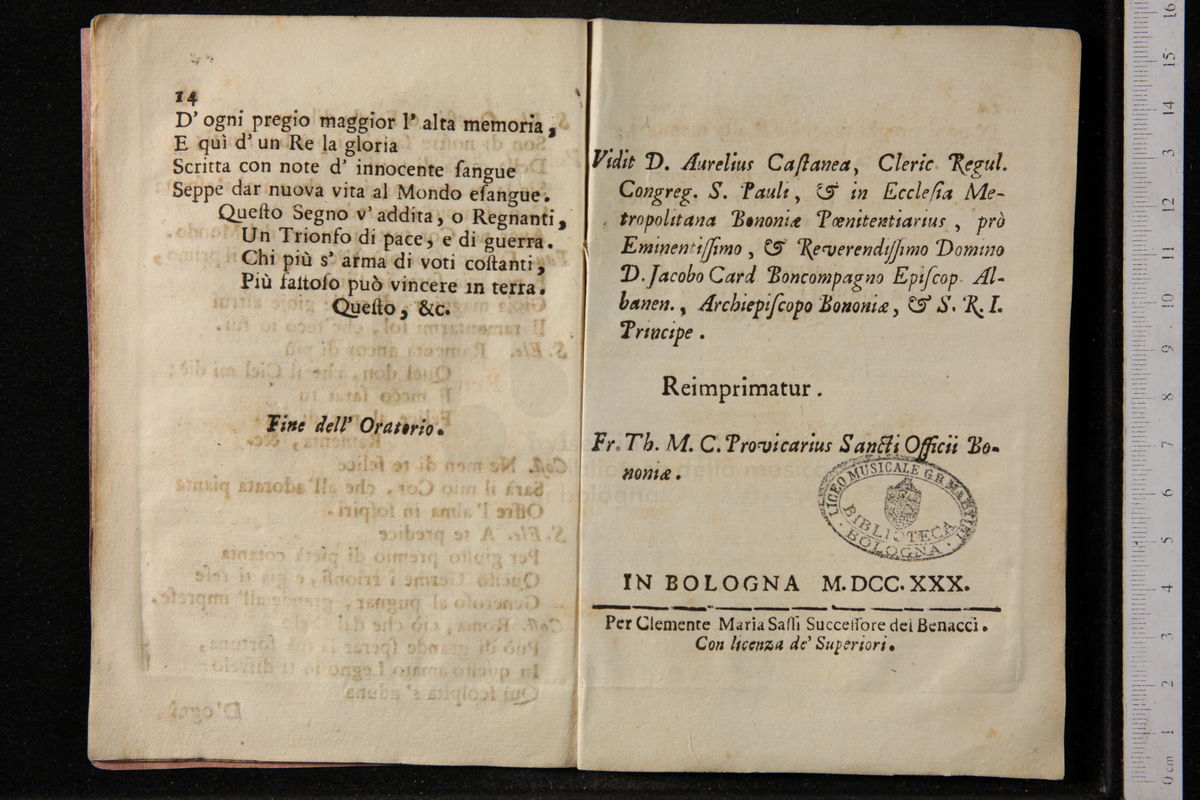 14
D' ogni pregio maggior l' alta memoria,
E quì d' un Re la gloria
Scritta con note d' innocente ſangue
Seppe dar nuova vita al Mondo eſangue.
Queſto Segno v' addita, o Regnanti,
Un Trionfo di pace, e di guerra.
Chi più s' arma di voti coſtanti,
Più faſtoſo può vincere in terra.
Queſto, &c.
Fine dell' Oratorio.
Vidit D. Aurelius Caſtanea, Cleric. Regul.
Congreg. S. Pauli, & in Eccleſia Me-
tropolitana Bononiæ Pœnitentiarius, prò
Eminentiſſimo, & Reverendiſſimo Domino
D. Jacobo Card Boncompagno Epiſcop. Al-
banen., Archiepiſcopo Bononiæ, & S. R. I.
Principe.
Reimprimatur.
Fr. Th. M. C. Provicarius Sancti Officii Bo-
noniæ.
LICEO MUSICALE G.B. MARTINI
BIBLIOTECA
BOLOGNA
IN BOLOGNA M.DCC.XXX.
Per Clemente Maria Saſſi Succeſſore dei Benacci.
Con licenza de' Superiori.